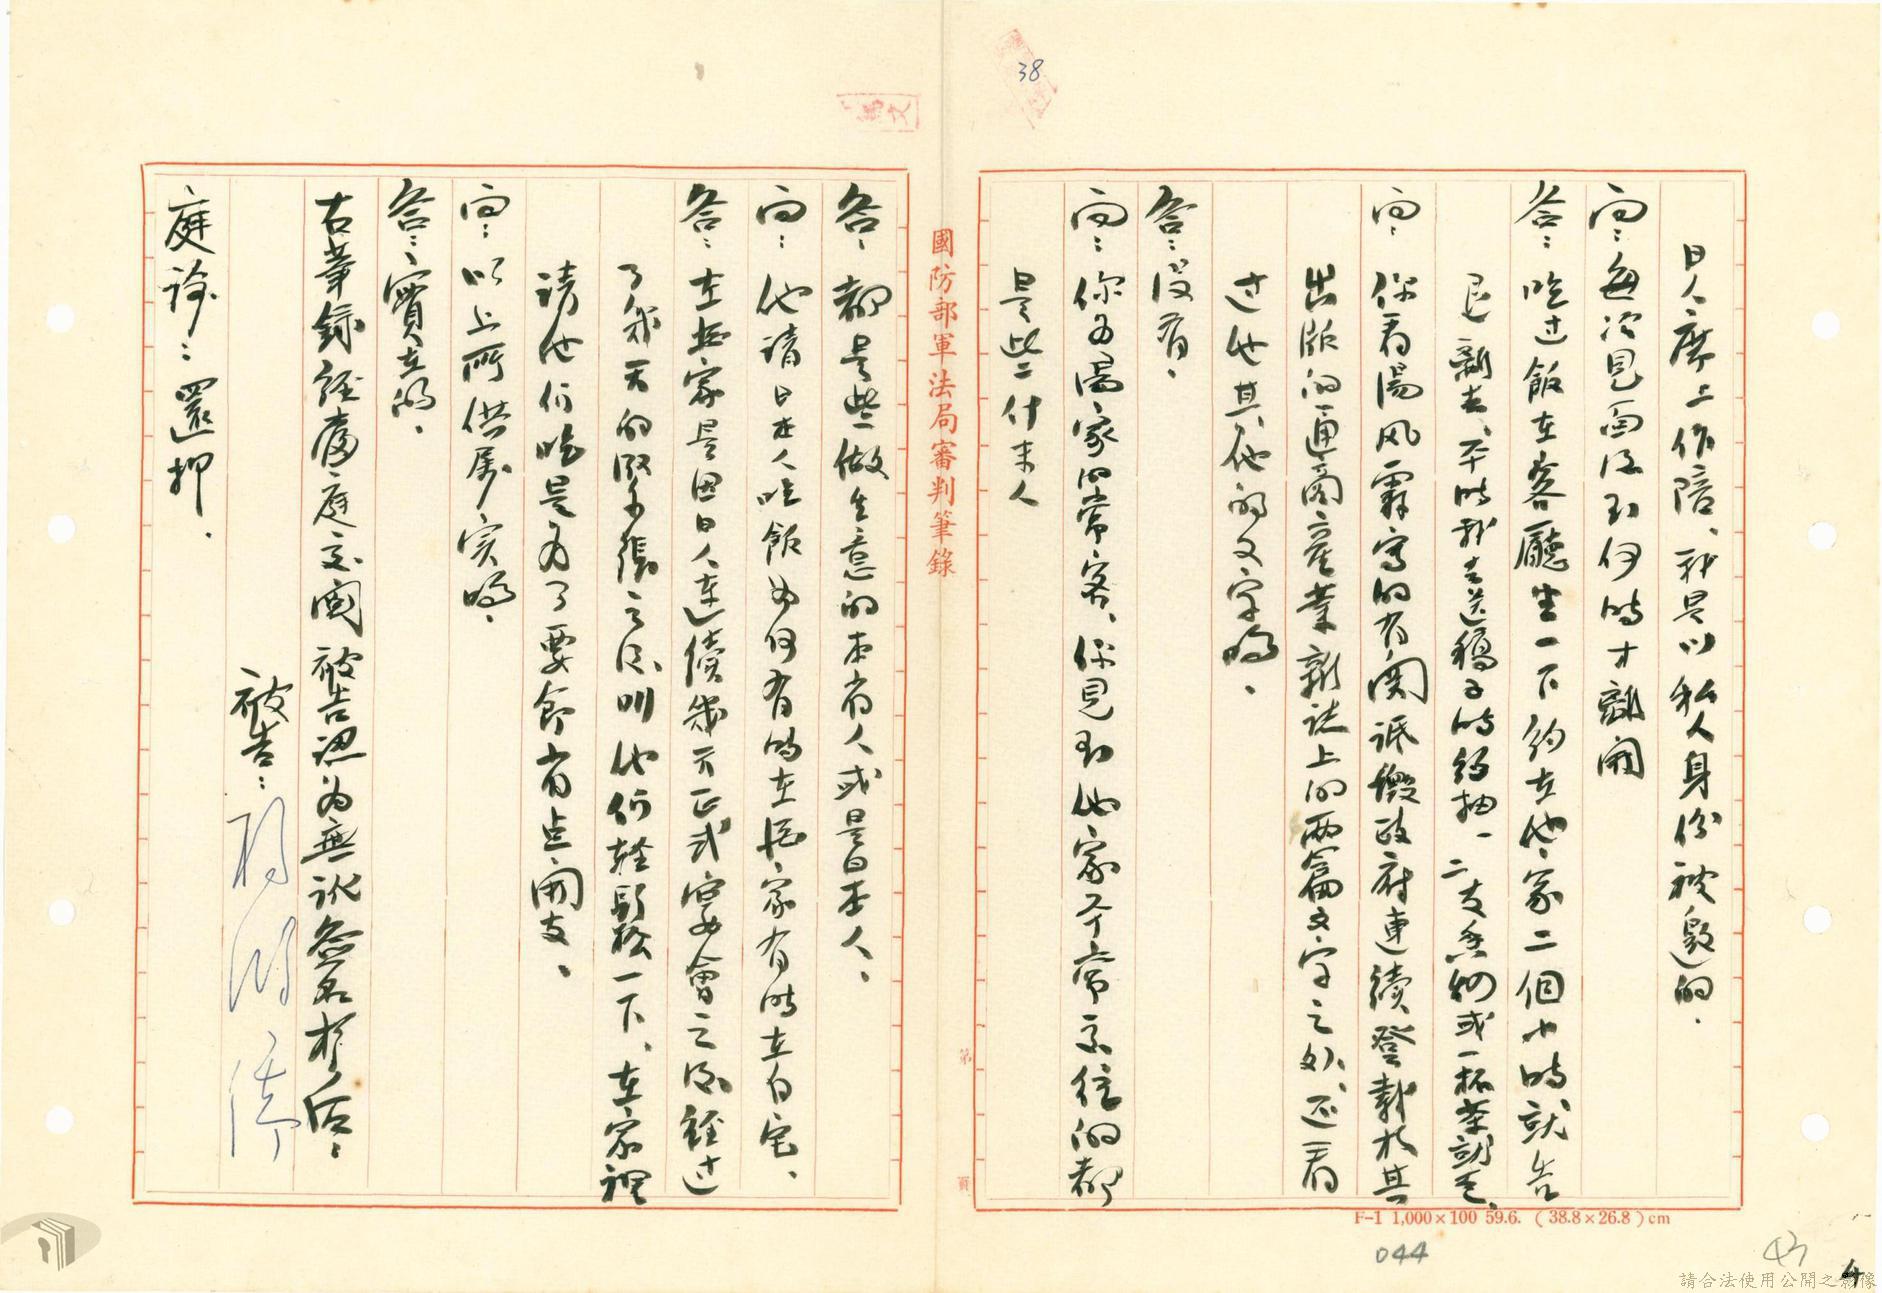 38
日人席上作陪、我是以私人身份被邀的.
问：每次見面後到何時才離開
答：吃过飯在客廳坐一下約在他家二個小時就告
退離去、平時我去送稿子時約抽一二支香烟或一杯茶就走、
问、你看湯风霖寫的有関詆毀政府連續登載於其
出版的通商產業新誌上的两篇文字之外、还看
过他其他的文字嗎、
答：没有、
问：你為湯家的常客、你見到他家平常交往的都
是些什末人
國防部軍法局審判筆錄
第
頁
答、都是些做生意的本省人或是日本人、
问：他請日本人吃飯為何有時在酒家有時在自宅、
答：在酒家是因日人連續幾天正式宴會之後經过
了幾天的緊張之後叫他们輕鬆一下、在家裡
請他们吃是為了要節省点開支、
问：以上所供屬实嗎、
答：實在的、
右筆錄經當庭交閱被告認為無訛簽名於后：
被告：
庭諭：還押、
F-1 1,000×100 59.6. (38.8×26.8)cm
044
請合法使用公開之影像